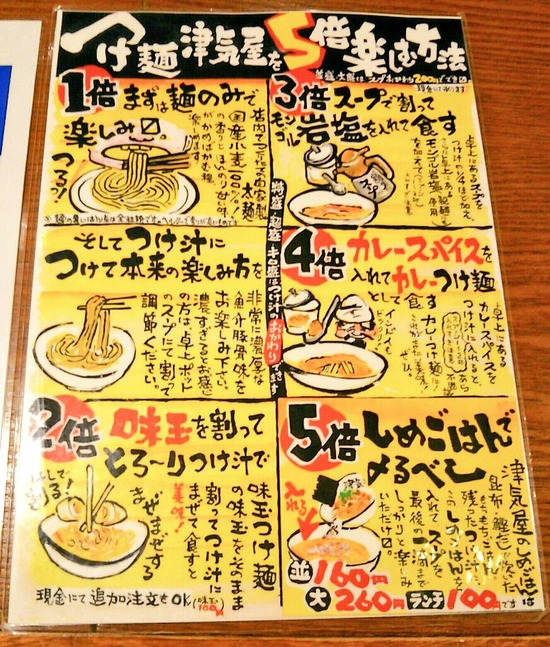 つけ麺 津気屋を5倍楽しむ方法
1倍 まずは麺のみで
楽しみ〼。
つるっ!
店内で
自家製
国産小麦100%
太麺
の香りと
ほんのり甘い味
がかめばかむ程
楽しめます
そしてつけ汁に
つけて本来の楽しみ方を
非常に濃厚な
魚介豚骨味を
お楽しみ下さい。
濃すぎるとお感じ
の方は卓上ポット
のスープにて割って
調節ください。
2倍 味玉を割って
とろ〜りつけ汁で
はしで
割る!
味玉つけ麺
の味玉をそのまま
割ってつけ汁に
まぜて食すと
美味!
まぜまぜする
現金にて追加注文もOK(味玉100円)
特盛・超盛・キロ盛はつけ汁のおかわりできます
3倍 スープで割って
モンゴル岩塩を入れて食す
卓上にあるスープを
つけ汁の1/4ほど加え、
モンゴル岩塩使用
4倍 カレースパイスを
入れてカレーつけ麺
として食す
卓上にある
カレースパイスを
つけ汁に入れると、
カレーつけ麺に!
これがまた美味!
ぜひ。
5倍 しめごはんで
〆るべし
津気屋のしめごはんは
昆布・鰹節で炊いた
もちもちごはん。
残ったつけ汁に
このしめごはんを
入れてスープを
最後の一滴まで
しっかりと楽しみ
いただけ〼。
入れる
並160円
大260円 ランチ100円です